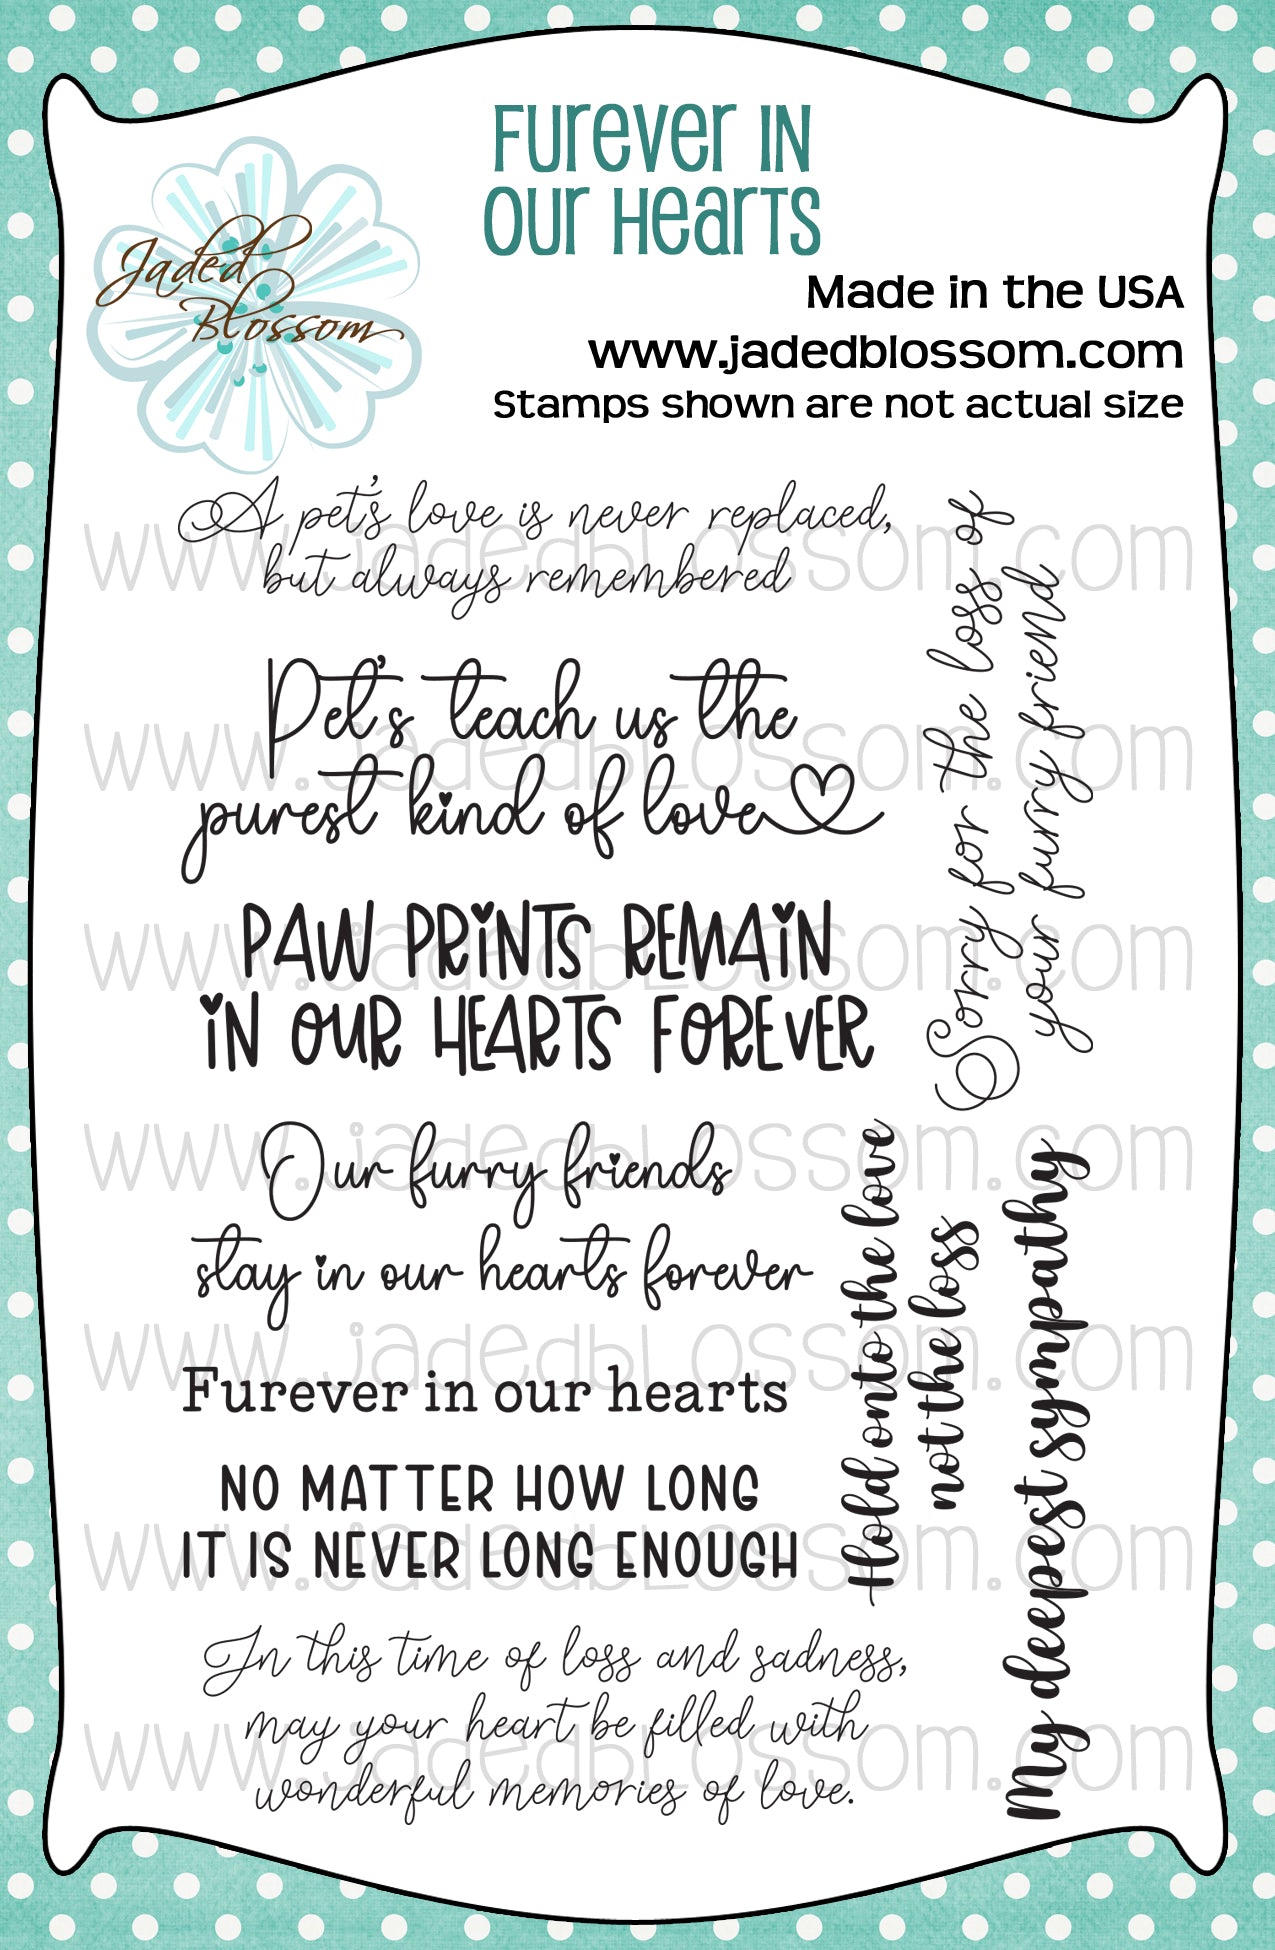 Furever in
our hearts
Jaded
Blossom
Made in the USA
www.jadedblossom.com
Stamps shown are not actual size
A pet's love is never replaced,
but always remembered
Pet's teach us the
purest kind of love
PAW PRINTS REMAIN
IN OUR HEARTS FOREVER
Our furry friends
stay in our hearts forever
Furever in our hearts
NO MATTER HOW LONG
IT IS NEVER LONG ENOUGH
In this time of loss and sadness,
may your heart be filled with
wonderful memories of love.
Sorry for the loss of
your furry friend
Hold onto the love
not the loss
My deepest sympathy
www.jadedblossom.com
www.jadedblossom.com
www.jadedblossom.com
www.jadedblossom.com
www.jadedblossom.com
www.jadedblossom.com
www.jadedblossom.com